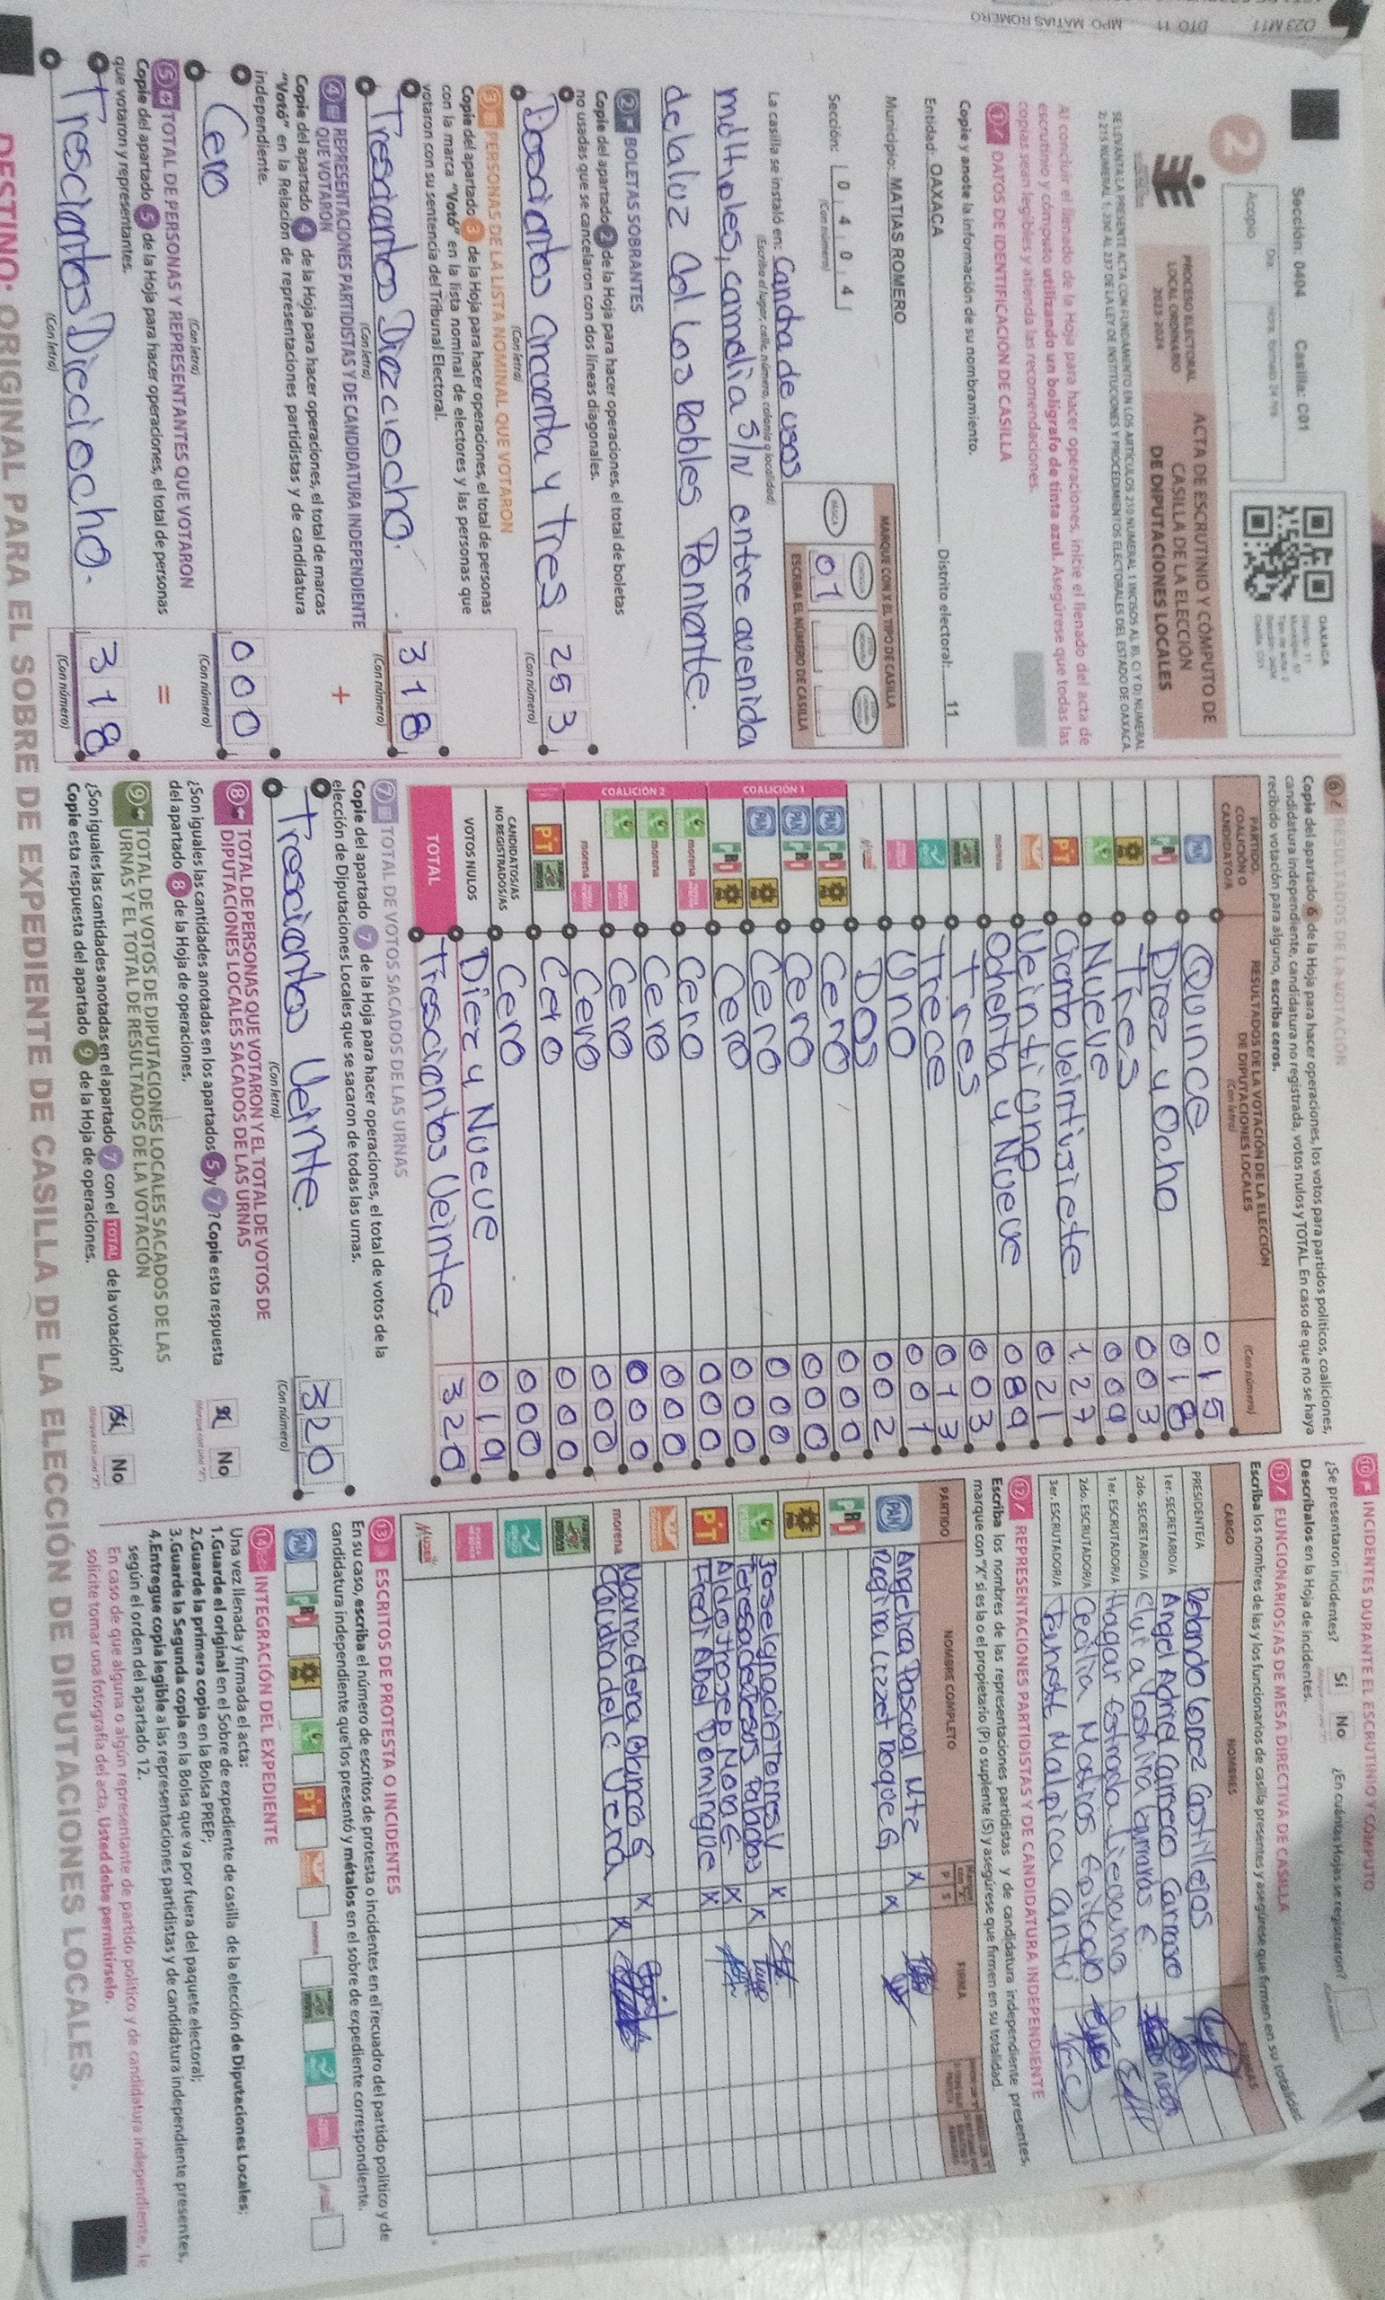 023 M11 DTO 11 MPO MATIAS ROMERO
Sección: 0404 Casilla: C01
Día:
Acopio
OAXACA
2
PROCESO ELECTORAL
LOCAL ORDINARIO
2023-2024
ACTA DE ESCRUTINIO Y CÓMPUTO DE
CASILLA DE LA ELECCIÓN
DE DIPUTACIONES LOCALES
Al concluir el llenado de la Hoja para hacer operaciones, inicie el llenado del acta de
escrutinio y cómputo utilizando un bolígrafo de tinta azul. Asegúrese que todas las
copias sean legibles y atienda las recomendaciones.
1 DATOS DE IDENTIFICACIÓN DE CASILLA
Copie y anote la información de su nombramiento.
Entidad: OAXACA Distrito electoral: 11
Municipio: MATIAS ROMERO
MARQUE CON X EL TIPO DE CASILLA
Sección: 0 4 0 4
(Con número)
BÁSICA
01
ESCRIBA EL NÚMERO DE CASILLA
La casilla se instaló en: Cancha de usos
(Escriba el lugar, calle, número, colonia o localidad)
múltiples, camelia S/N entre avenida
de la luz Col Los Robles Poniente.
2 BOLETAS SOBRANTES
Copie del apartado 2 de la Hoja para hacer operaciones, el total de boletas
no usadas que se cancelaron con dos líneas diagonales.
Doscientos cincuenta y tres 253
(Con letra) (Con número)
3 PERSONAS DE LA LISTA NOMINAL QUE VOTARON
Copie del apartado 3 de la Hoja para hacer operaciones, el total de personas
con la marca "Votó" en la lista nominal de electores y las personas que
votaron con su sentencia del Tribunal Electoral.
Trescientos Dieciocho. 318
(Con letra) (Con número)
4 REPRESENTACIONES PARTIDISTAS Y DE CANDIDATURA INDEPENDIENTE
QUE VOTARON
+
Copie del apartado 4 de la Hoja para hacer operaciones, el total de marcas
"Votó" en la Relación de representaciones partidistas y de candidatura
independiente.
Cero 000
(Con letra) (Con número)
5 TOTAL DE PERSONAS Y REPRESENTANTES QUE VOTARON
=
Copie del apartado 5 de la Hoja para hacer operaciones, el total de personas
que votaron y representantes.
Trescientos Dieciocho. 318
(Con letra) (Con número)
6 RESULTADOS DE LA VOTACIÓN
Copie del apartado 6 de la Hoja para hacer operaciones, los votos para partidos políticos, coaliciones,
candidatura independiente, candidatura no registrada, votos nulos y TOTAL. En caso de que no se haya
recibido votación para alguno, escriba ceros.
PARTIDO,
COALICIÓN O
CANDIDATO/A
RESULTADOS DE LA VOTACIÓN DE LA ELECCIÓN
DE DIPUTACIONES LOCALES
(Con letra)
(Con número)
PAN Quince 015
PRI Diez y Ocho 018
PRD Tres 003
Nueve 009
PT Ciento Veintisiete 127
Veintiuno 021
morena Ochenta y Nueve 089
Tres 003
Trece 013
Uno 001
Dos 002
COALICIÓN 1
PAN PRI PRD Cero 000
PAN PRI Cero 000
PAN PRD Cero 000
PRI PRD Cero 000
COALICIÓN 2
morena Cero 000
morena Cero 000
Cero 000
morena Cero 000
PT Cero 000
CANDIDATOS/AS
NO REGISTRADOS/AS
Cero 000
VOTOS NULOS Diez y Nueve 019
TOTAL Trescientos Veinte. 320
7 TOTAL DE VOTOS SACADOS DE LAS URNAS
Copie del apartado 7 de la Hoja para hacer operaciones, el total de votos de la
elección de Diputaciones Locales que se sacaron de todas las urnas.
Trescientos Veinte. 320
(Con letra) (Con número)
8 TOTAL DE PERSONAS QUE VOTARON Y EL TOTAL DE VOTOS DE
DIPUTACIONES LOCALES SACADOS DE LAS URNAS
¿Son iguales las cantidades anotadas en los apartados 5 y 7? Copie esta respuesta
del apartado 8 de la Hoja de operaciones.
No
9 TOTAL DE VOTOS DE DIPUTACIONES LOCALES SACADOS DE LAS
URNAS Y EL TOTAL DE RESULTADOS DE LA VOTACIÓN
¿Son iguales las cantidades anotadas en el apartado 7 con el TOTAL de la votación?
Copie esta respuesta del apartado 9 de la Hoja de operaciones.
No
10 INCIDENTES DURANTE EL ESCRUTINIO Y CÓMPUTO
¿Se presentaron incidentes? Sí No ¿En cuántas Hojas se registraron?
Descríbalos en la Hoja de incidentes.
11 FUNCIONARIOS/AS DE MESA DIRECTIVA DE CASILLA
Escriba los nombres de las y los funcionarios de casilla presentes y asegúrese que firmen en su totalidad
CARGO NOMBRES
PRESIDENTE/A Rolando Lopez Castillejos
1er. SECRETARIO/A Angel Adriel Carrasco
2do. SECRETARIO/A
1er. ESCRUTADOR/A Hagar Estrada
2do. ESCRUTADOR/A Cecilia
3er. ESCRUTADOR/A Malpica
12 REPRESENTACIONES PARTIDISTAS Y DE CANDIDATURA INDEPENDIENTE
Escriba los nombres de las representaciones partidistas y de candidatura independiente presentes,
marque con "X" si es la o el propietario (P) o suplente (S) y asegúrese que firmen en su totalidad.
PARTIDO NOMBRE COMPLETO P S FIRMA
PAN Angelica Pascual Mtz X
Regina Lizzet Roque G X
PRI
PRD
Jose Ignacio Torres V X
Teresa de Jesus X
PT X
X
morena X
X
13 ESCRITOS DE PROTESTA O INCIDENTES
En su caso, escriba el número de escritos de protesta o incidentes en el recuadro del partido político y de
candidatura independiente que los presentó y métalos en el sobre de expediente correspondiente.
PAN PRI PRD PT
14 INTEGRACIÓN DEL EXPEDIENTE
Una vez llenada y firmada el acta:
1.Guarde el original en el Sobre de expediente de casilla de la elección de Diputaciones Locales;
2.Guarde la primera copia en la Bolsa PREP;
3.Guarde la Segunda copia en la Bolsa que va por fuera del paquete electoral;
4.Entregue copia legible a las representaciones partidistas y de candidatura independiente presentes,
según el orden del apartado 12.
En caso de que alguna o algún representante de partido político y de candidatura independiente, le
solicite tomar una fotografía del acta, Usted debe permitírselo.
DESTINO: ORIGINAL PARA EL SOBRE DE EXPEDIENTE DE CASILLA DE LA ELECCIÓN DE DIPUTACIONES LOCALES.